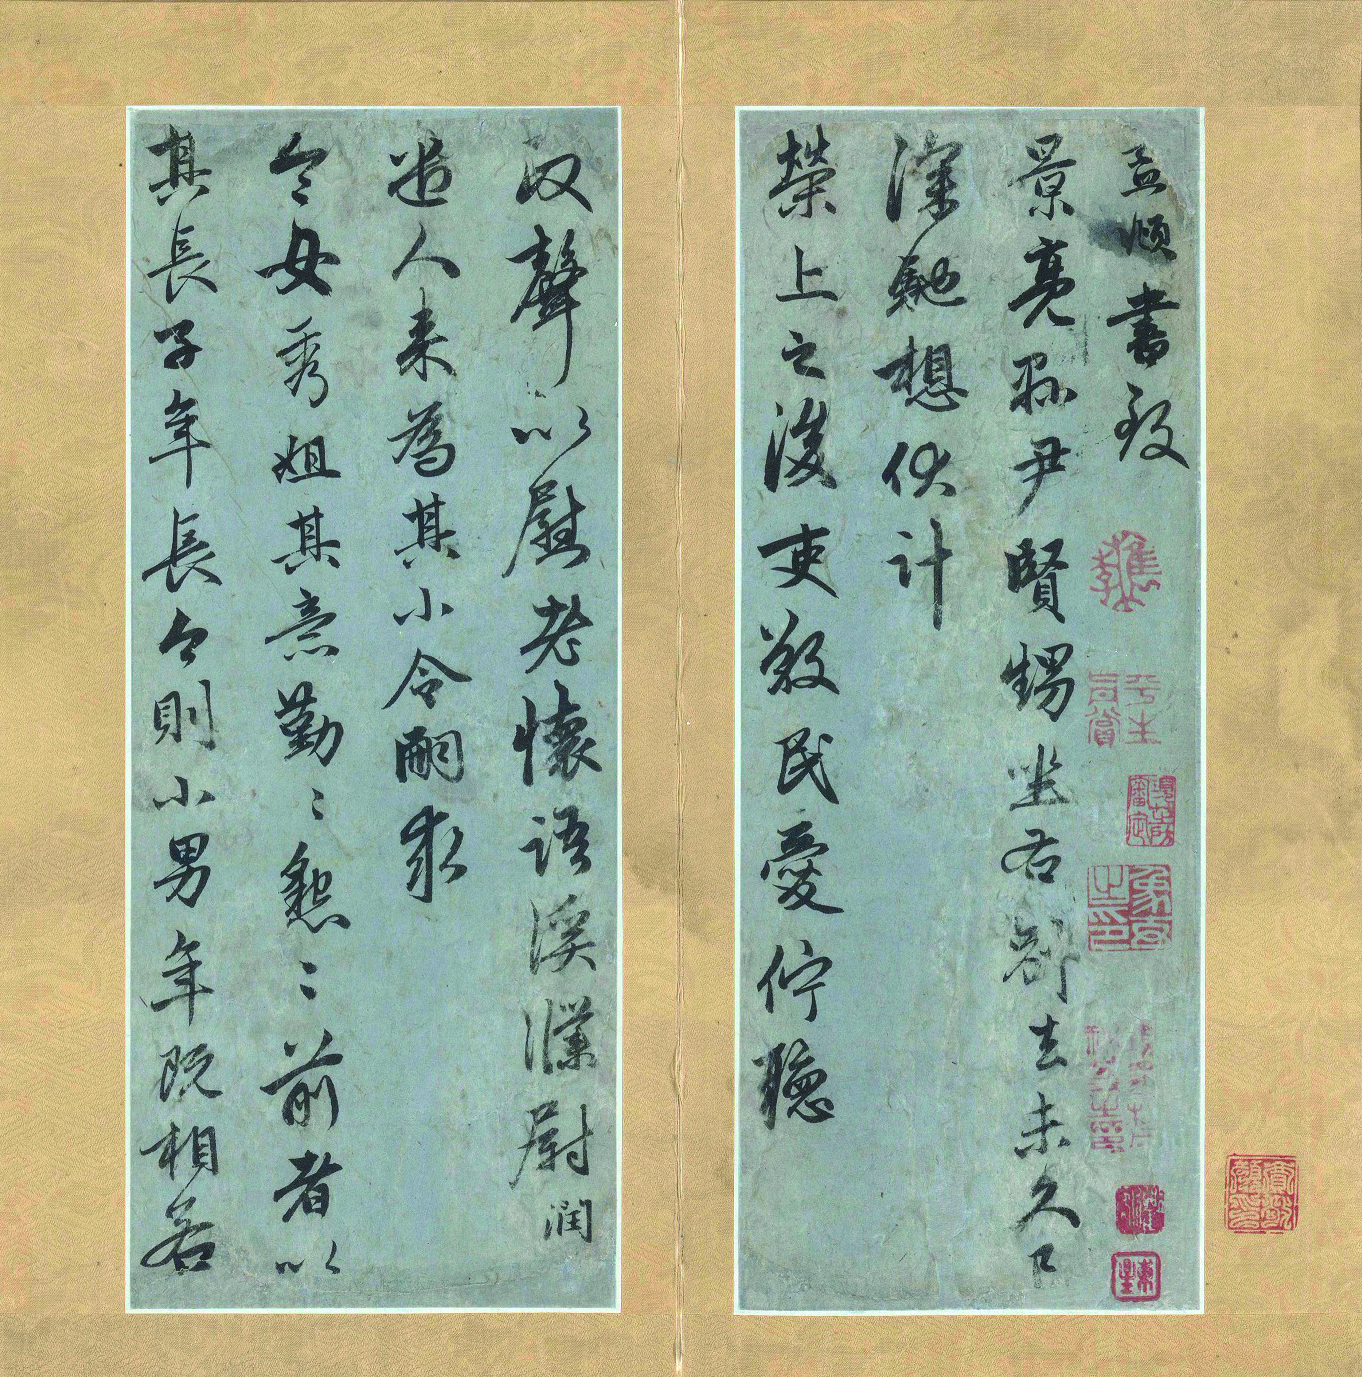 孟頫書致
景亮縣尹賢甥坐右別去未久已
深馳想伏計
榮上之後吏敬民愛佇聽
政聲以慰老懷語溪濮尉潤
遣人來為其小令嗣求
令女秀姐其意勤〻懇〻前者以
其長子年長今則小男年既相若
平生
真賞